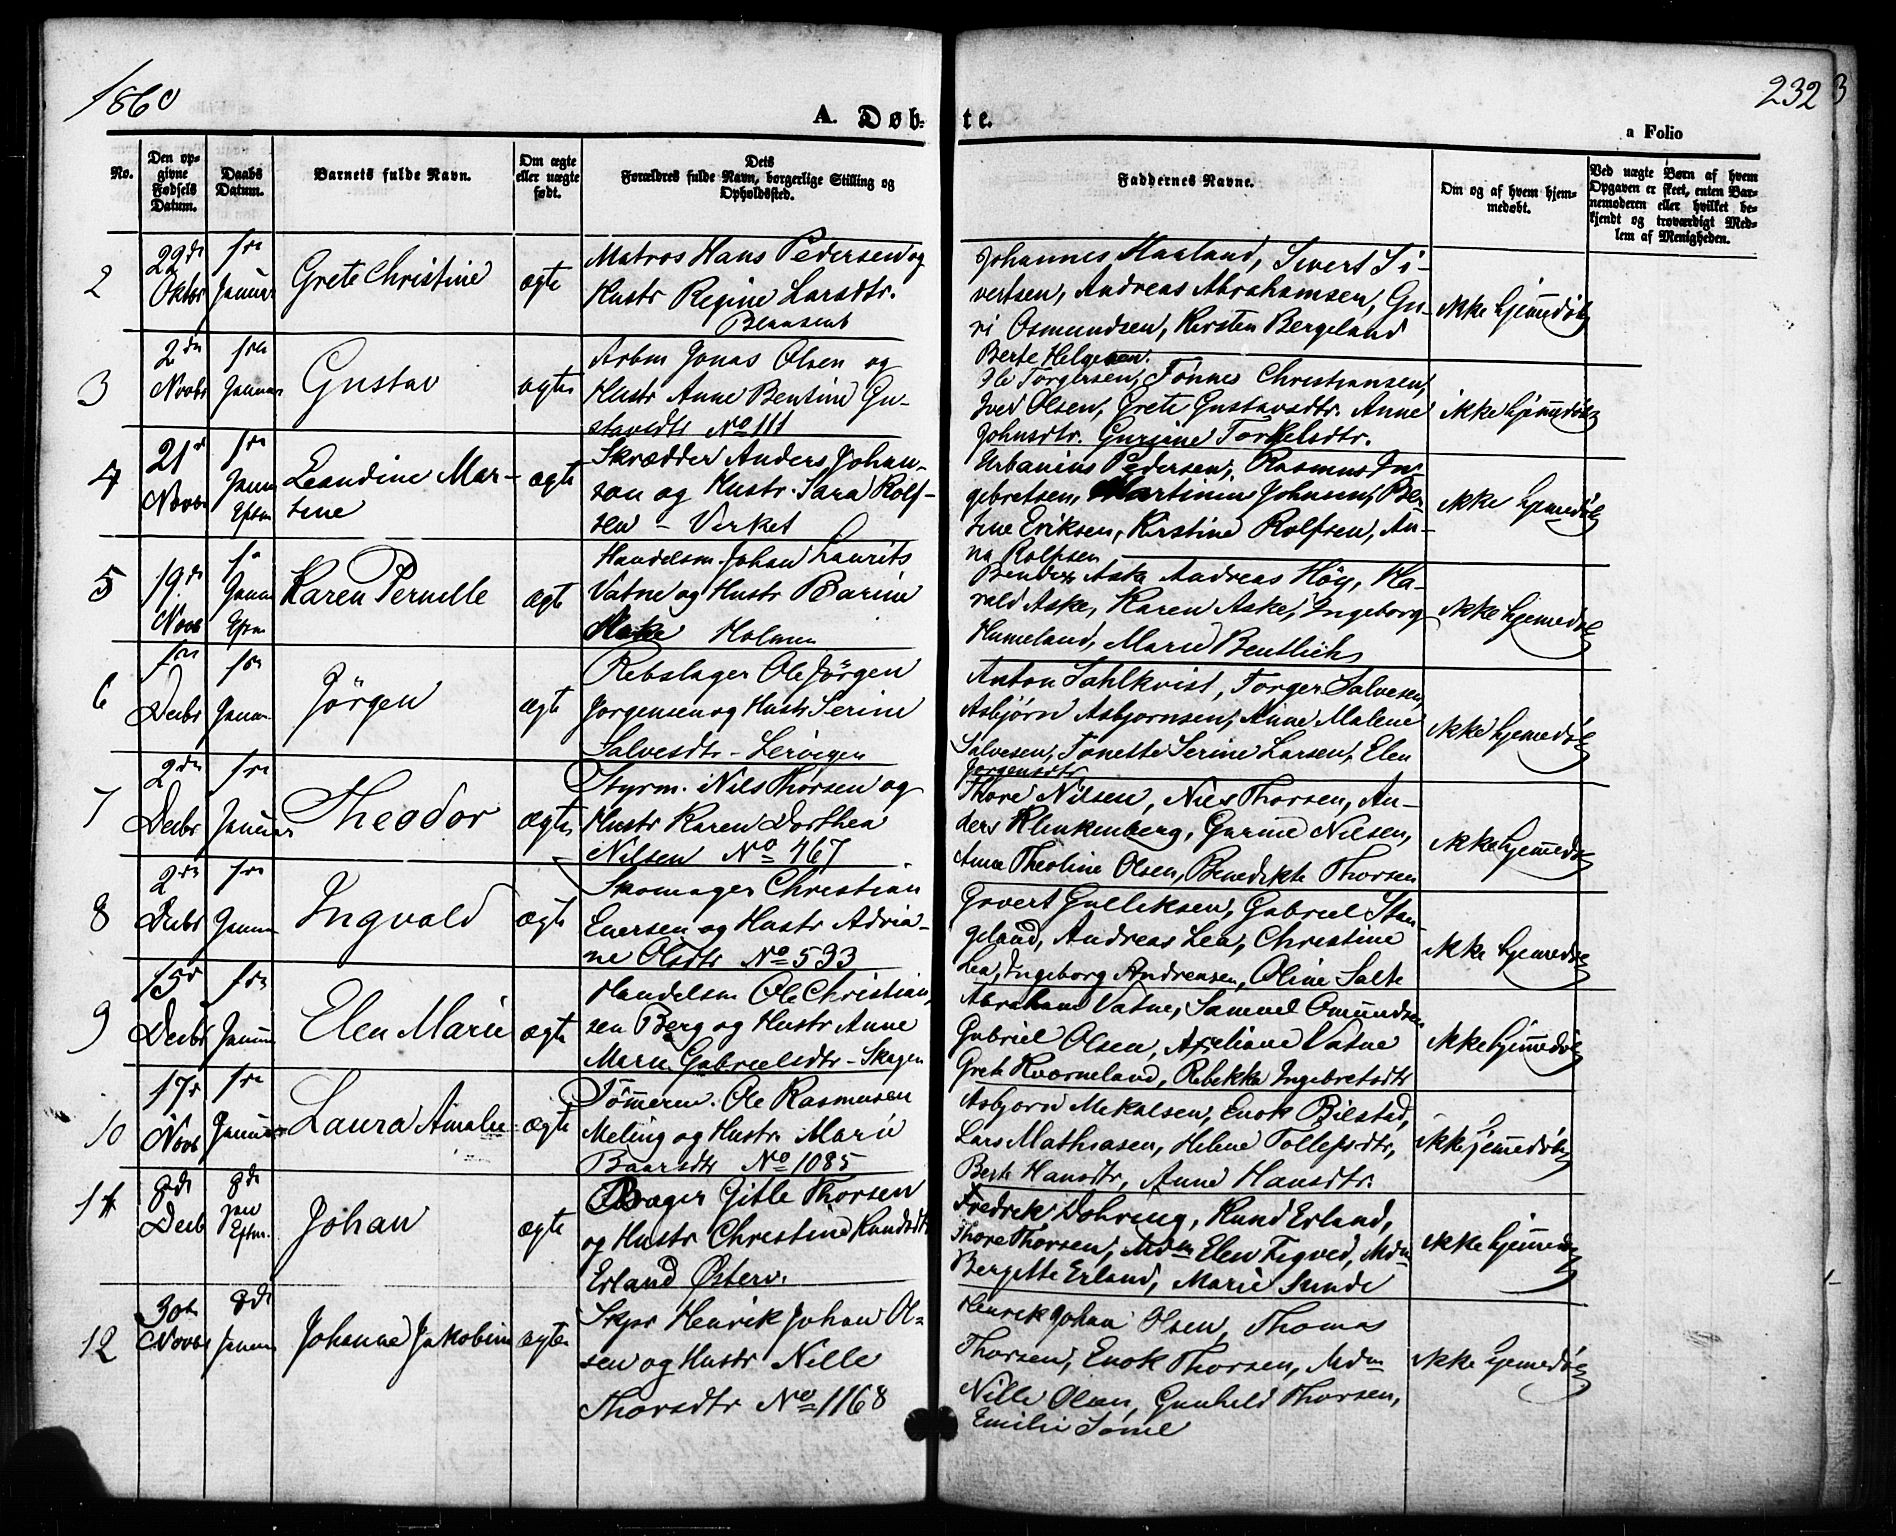 1860
232 3
A. Døb-te.
a Folio
No.
Den op-
givne
Fødsels
Datum.
Daabs
Datum.
Barnets fulde Navn.
Om ægte
eller uægte
født.
Dets
Forældres fulde Navn, borgerlige Stilling og
Opholdssted.
Faddernes Navne.
Om og af hvem hjem-
medøbt.
Ved uægte Børn af hvem
Opgaven er skeet, enten Bar-
nemoderen eller hvilket be-
kjendt og troværdigt Med-
lem af Menigheden.
2
29de
Oktbr
1ste
Januar
Grete Christine
ægte
Matros Hans Pedersen og
Hustr Regine Larsdtr.
Johannes Haaland, Sivert Si-
vertsen, Andreas Abrahamsen, Gu-
ri Osmundsen, Kirsten Bergeland
Berte Helgesen.
ikke hjemedøbt
3
2den
Novbr
Januar
Gustav
ægte
Arbm Jonas Olsen og
Hustr Anne Bentine Gu-
stavsdtr No 111
Ole Torgersen, Tönnes Christiansen,
Olsen, Grete Gustavsdtr. Anne
Johnsdtr. Gurine Torkelsdtr.
ikke hjemmedøbt
4
21de
Novbr
Januar
Eftm
Leandine Mar-
tine
ægte
Skrædder Anders Johan-
son og Hustr. Sara Rolf-
sen - Verket
Urbanius Pedersen, Rasmus In-
gebretsen, Martinius Johnsen, Ber-
tine Eriksen, Kirstine Rolfsen, An-
na Rolfsen
ikke hjemedøbt
5
19de
Novb
Januar
Eftm
Karen Pernille
ægte
Handelsm. Johan Laurits
Vatne og Hustr Barine
Aske Holmen
Bendix Aske Andreas Höy, Ha-
rald Aske, Karen Aske, Ingeborg
Humeland, Marie Bentlich
ikke hjemedøbt
6
Decbr
Januar
Jörgen
ægte
Rebslager Ole Jörgen
Jorgensen og Hustr Serine
Salvesdtr - Lervigen
Anton Sahlkvist, Torger Salvesen,
Asbjørn Asbjornsen, Anne Malene
Salvesen, Tonette Serine Larsen, Elen
Jorgensdtr
ikke hjemedøbt
7
2den
Decbr
Januar
Theodor
ægte
Styrm. Nils Thorsen og
Hustr Karen Dorthea
Nilsen No 467
Thore Nilsen, Niels Thorsen, An-
ders Klinkenberg, Gurine Nilsen,
Anne Theoline Olsen, Benedikte Thorsen
ikke hjemmedøbt
8
2den
Decbr
Januar
Ingvald
ægte
Skomager Christian
Enersen og Hustr Adria-
ne Olsdtr No 593
Govert Gulliksen, Gabriel Stan-
geland, Andreas Lea, Christine
Lea, Ingeborg Andreasen, Oline Salte
ikke hjemedøbt
9
15de
Decbr
Januar
Elen Marie
ægte
Handelsm Ole Christian-
sen Berg og Hustr Anne
Marie Gabrielsdtr - Skagen
Abraham Vatne, Samuel Omundsen
Gabriel Olsen, Axeliane Vatne
Grete Kverneland, Rebekka Ingebretsdtr
ikke hjemmedøbt
10
17de
Novb
Januar
Laura Amalie
ægte
Tömmerm. Ole Rasmusen
Meling og Hustr. Marie
Baarsdtr No 1085
Asbjorn Mikalsen, Enok Bilstad,
Lars Mathiasen, Helene Tollefsdtr,
Berte Hansdtr, Anne Hansdtr.
ikke hjemmedøbt
11
8de
Decb
8de
Jan
Eftm.
Johan
ægte
Drager Gitle Thorsen
og Hustr Christine Knudsdtr
Erland Østerv.
Fredrik Dohring, Knud Erland,
Thore Thorsen, Mdm Elen Tigved, Mdm
Bergitte Erland, Marie Sunde
ikke hjemmedøbt
12
30te
Novbr
8de
Januar
Johanne Jakobine
ægte
Skpr Henrik Johan Ol-
sen og Hustr Nille
Thorsdtr No 1168
Henrik Johan Olsen, Thomas
Thorsen, Enok Thorsen, Mdm
Nille Olsen, Gunhild Thorsen,
Emilie Sömme
ikke hjemedøbt